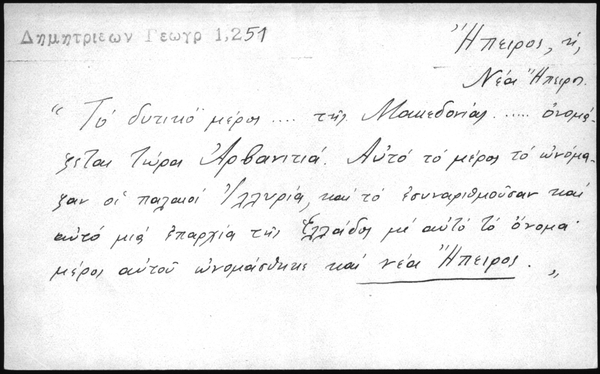 Δημητριεων Γεωγρ 1,251
Ἤπειρος, ἡ,
Νέα Ἤπειρ.
“ Τό δυτικό μέρος .... τῆς Μακεδονίας ..... ὀνομά-
ζεται τώρα Ἀρβανιτιά. Αὐτό τό μέρος τό ὠνόμα-
ζαν οἱ παλαιοί Ἰλλυρία, καί τό ἐσυναριθμοῦσαν καί
αὐτό μιά ἐπαρχία τῆς Ἑλλάδος μέ αὐτό τό ὄνομα·
μέρος αὐτοῦ ὠνομάσθηκε καί νέα Ἤπειρος. „